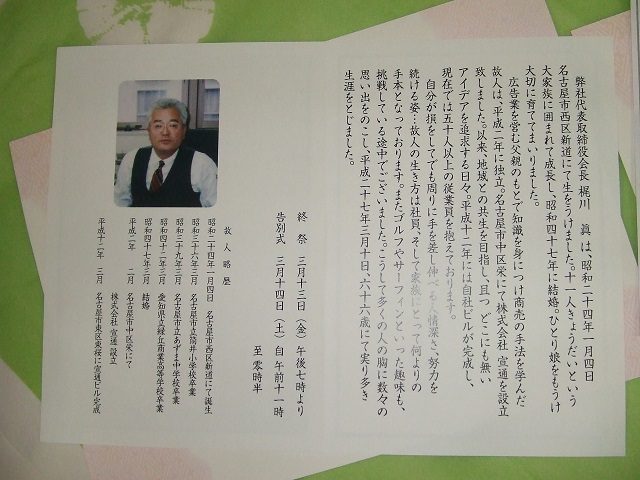 弊社代表取締役会長 梶川 眞 は、昭和二十四年一月四日
名古屋市西区新道にて生をうけました。十一人きょうだいという
大家族に囲まれて成長し、昭和四十七年に結婚。ひとり娘をもうけ
大切に育ててまいりました。
広告業を営む父親のもとで知識を身につけ商売の手法を学んだ
故人は、平成二年に独立。名古屋市中区栄にて株式会社 宣通を設立
致しました。以来、地域との共生を目指し、且つ どこにも無い
アイデアを追求する日々。平成十二年には自社ビルが完成し、
現在では五十人以上の従業員を抱えております。
自分が損をしてでも周りに手を差し伸べる人情深さ、努力を
続ける姿…故人の生き方は社員、そして家族にとって何よりの
手本となっております。またゴルフやサーフィンといった趣味も、
挑戦している途中でございました。こうして多くの人の胸に数々の
思い出をのこし、平成二十七年三月十日、六十六歳にて実り多き
生涯をとじました。
終 祭 三月十三日(金)午後七時より
告別式 三月十四日(土)自 午前十一時
至 零時半
故人略歴
昭和二十四年一月四日 名古屋市西区新道にて誕生
昭和三十六年三月 名古屋市立筒井小学校卒業
昭和三十九年三月 名古屋市立あずま中学校卒業
昭和四十二年三月 愛知県立緑丘商業高等学校卒業
昭和四十七年三月 結婚
平成二年 二月 名古屋市中区栄にて
株式会社 宣通 設立
平成十二年 三月 名古屋市東区東桜に宣通ビル完成